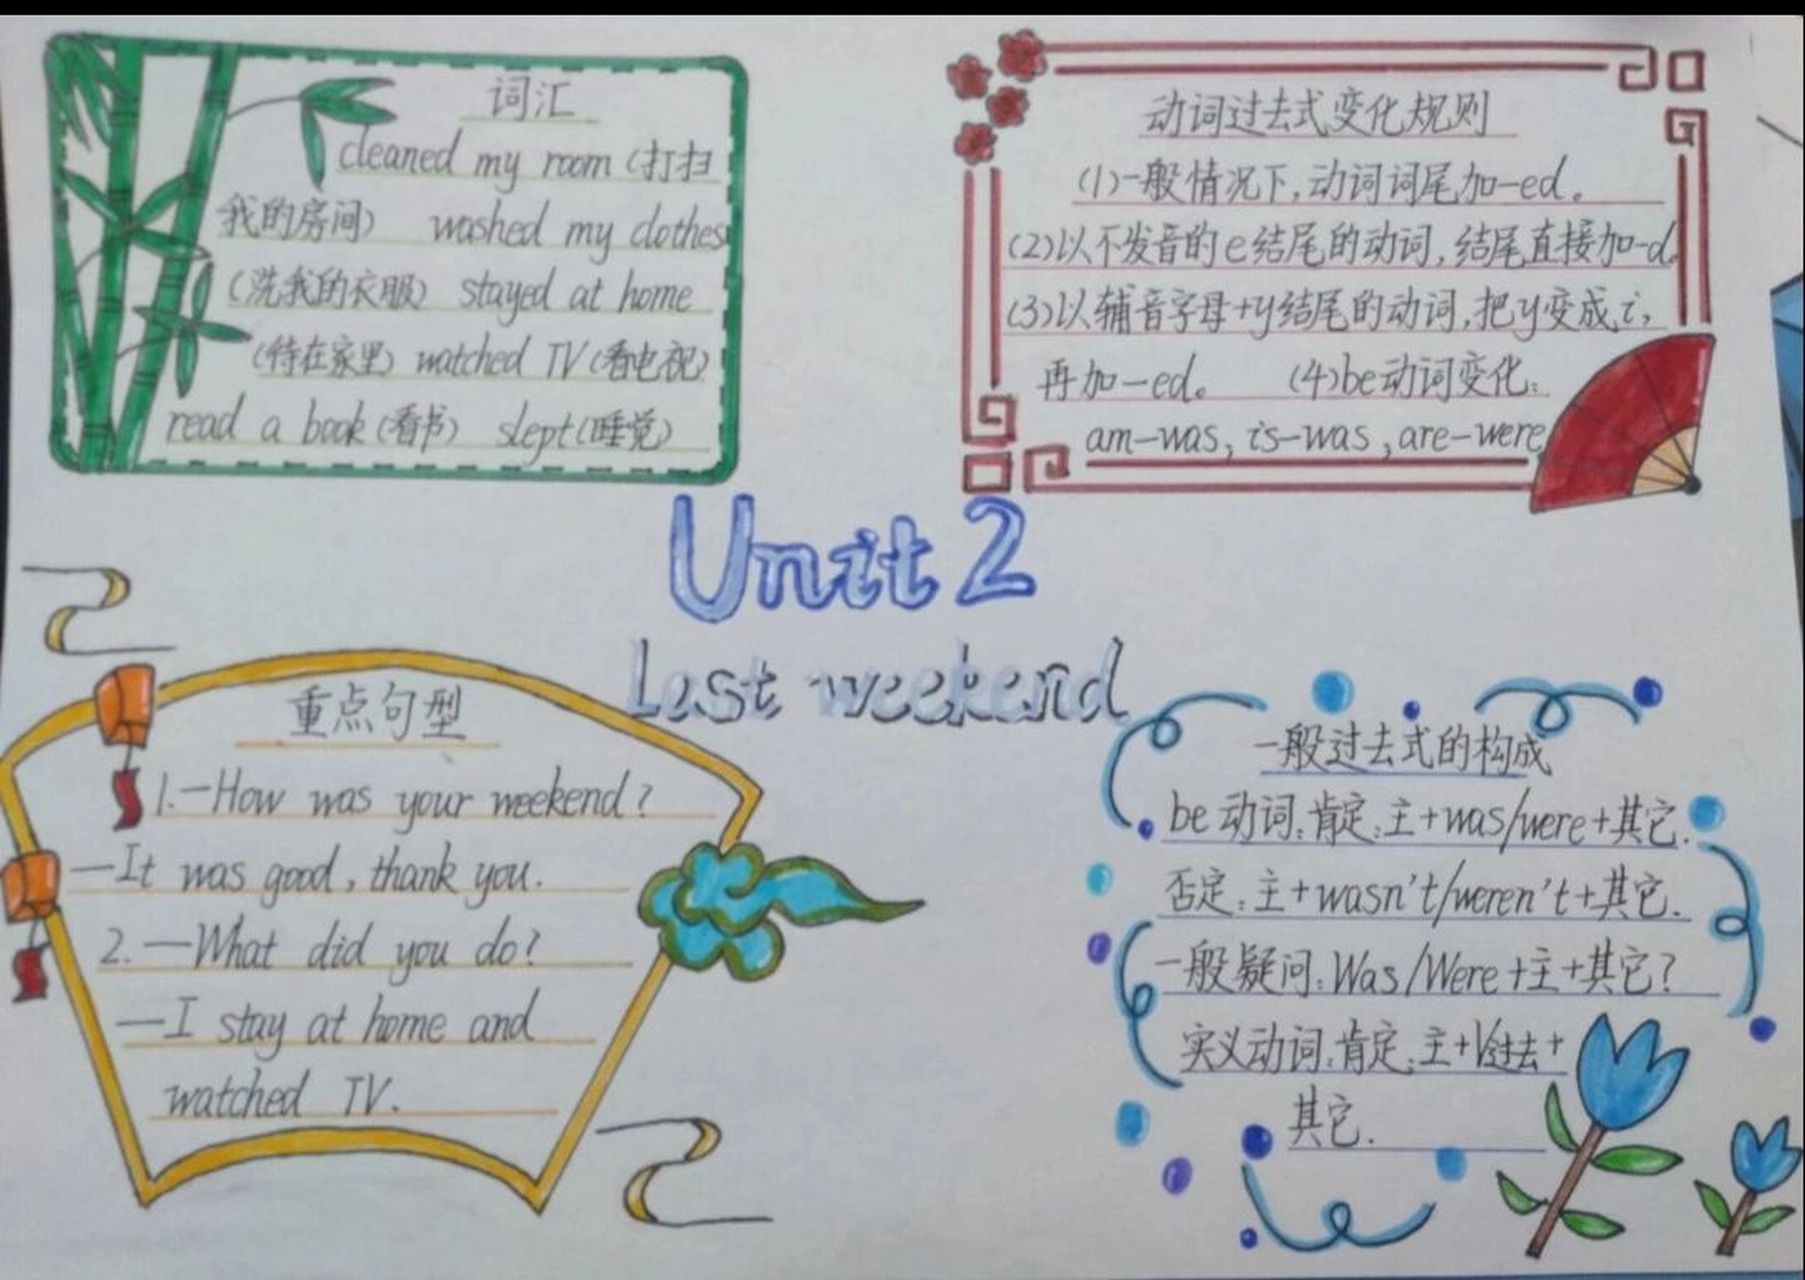 词汇
cleaned my room (打扫
我的房间) washed my clothes
(洗我的衣服) stayed at home
(待在家里) watched TV (看电视)
read a book (看书) slept (睡觉)
动词过去式变化规则
(1)一般情况下,动词词尾加-ed。
(2)以不发音的e结尾的动词,结尾直接加-d。
(3)以辅音字母+y结尾的动词,把y变成i,
再加-ed。 (4)be动词变化:
am-was, is-was, are-were
Unit 2
Last weekend
重点句型
1.—How was your weekend?
—It was good, thank you.
2.—What did you do?
—I stay at home and
watched TV.
一般过去式的构成
be动词:肯定:主+was/were+其它.
否定:主+wasn't/weren't+其它.
一般疑问:Was/Were+主+其它?
实义动词:肯定:主+V过去+
其它.